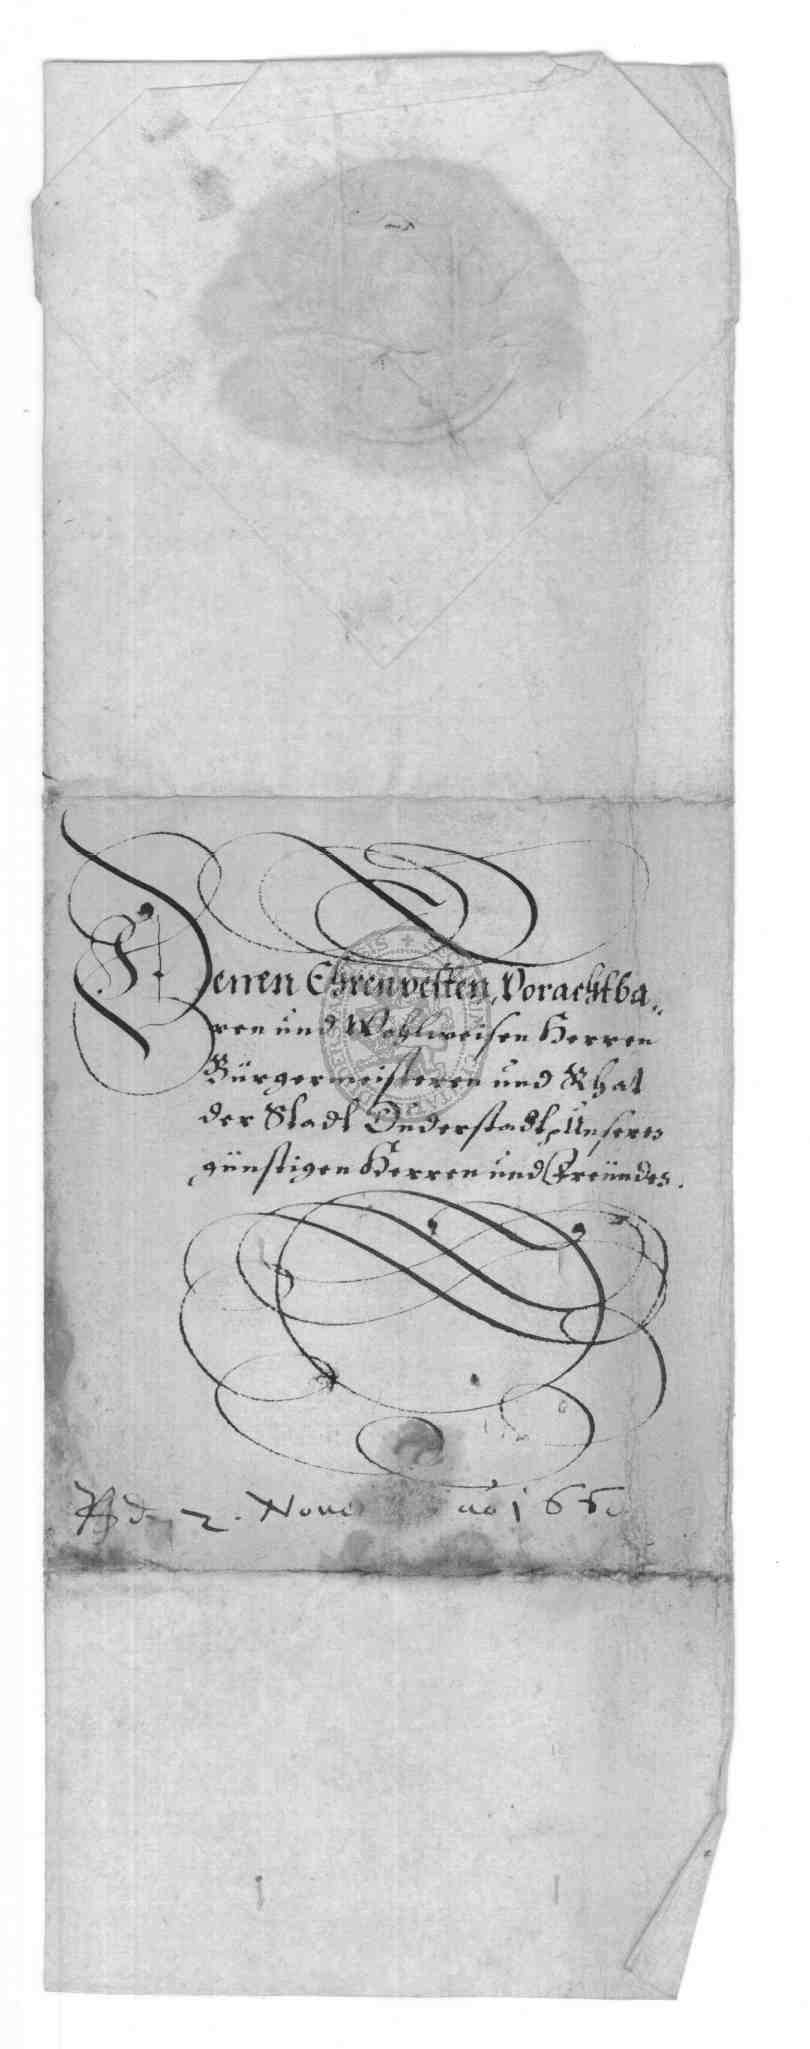 Denen Ehrenvesten, Vorachtba„
ren und Wohlweisen Herren
Bürgermeisteren und Rhat
der Stadt Onderstadt, Unseren
günstigen Herren und Freünden.
2. Nove 166